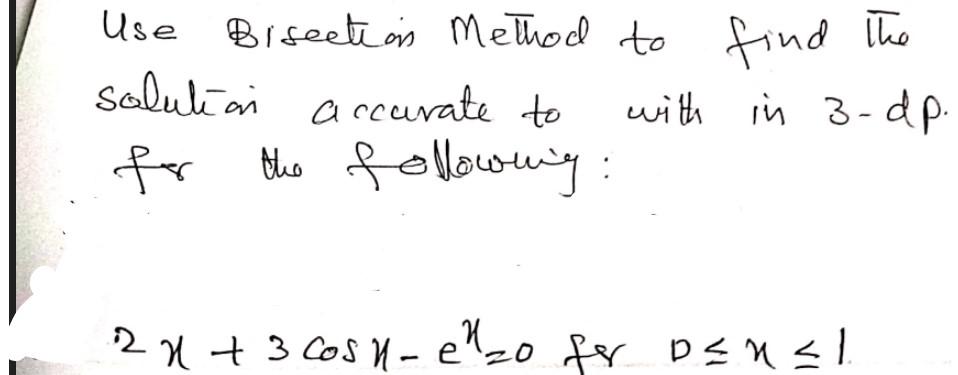 Use Bisection Method to find the
solution accurate to with in 3-dp.
for the following:
2x + 3 cos x - e^x = 0 for 0 ≤ x ≤ 1